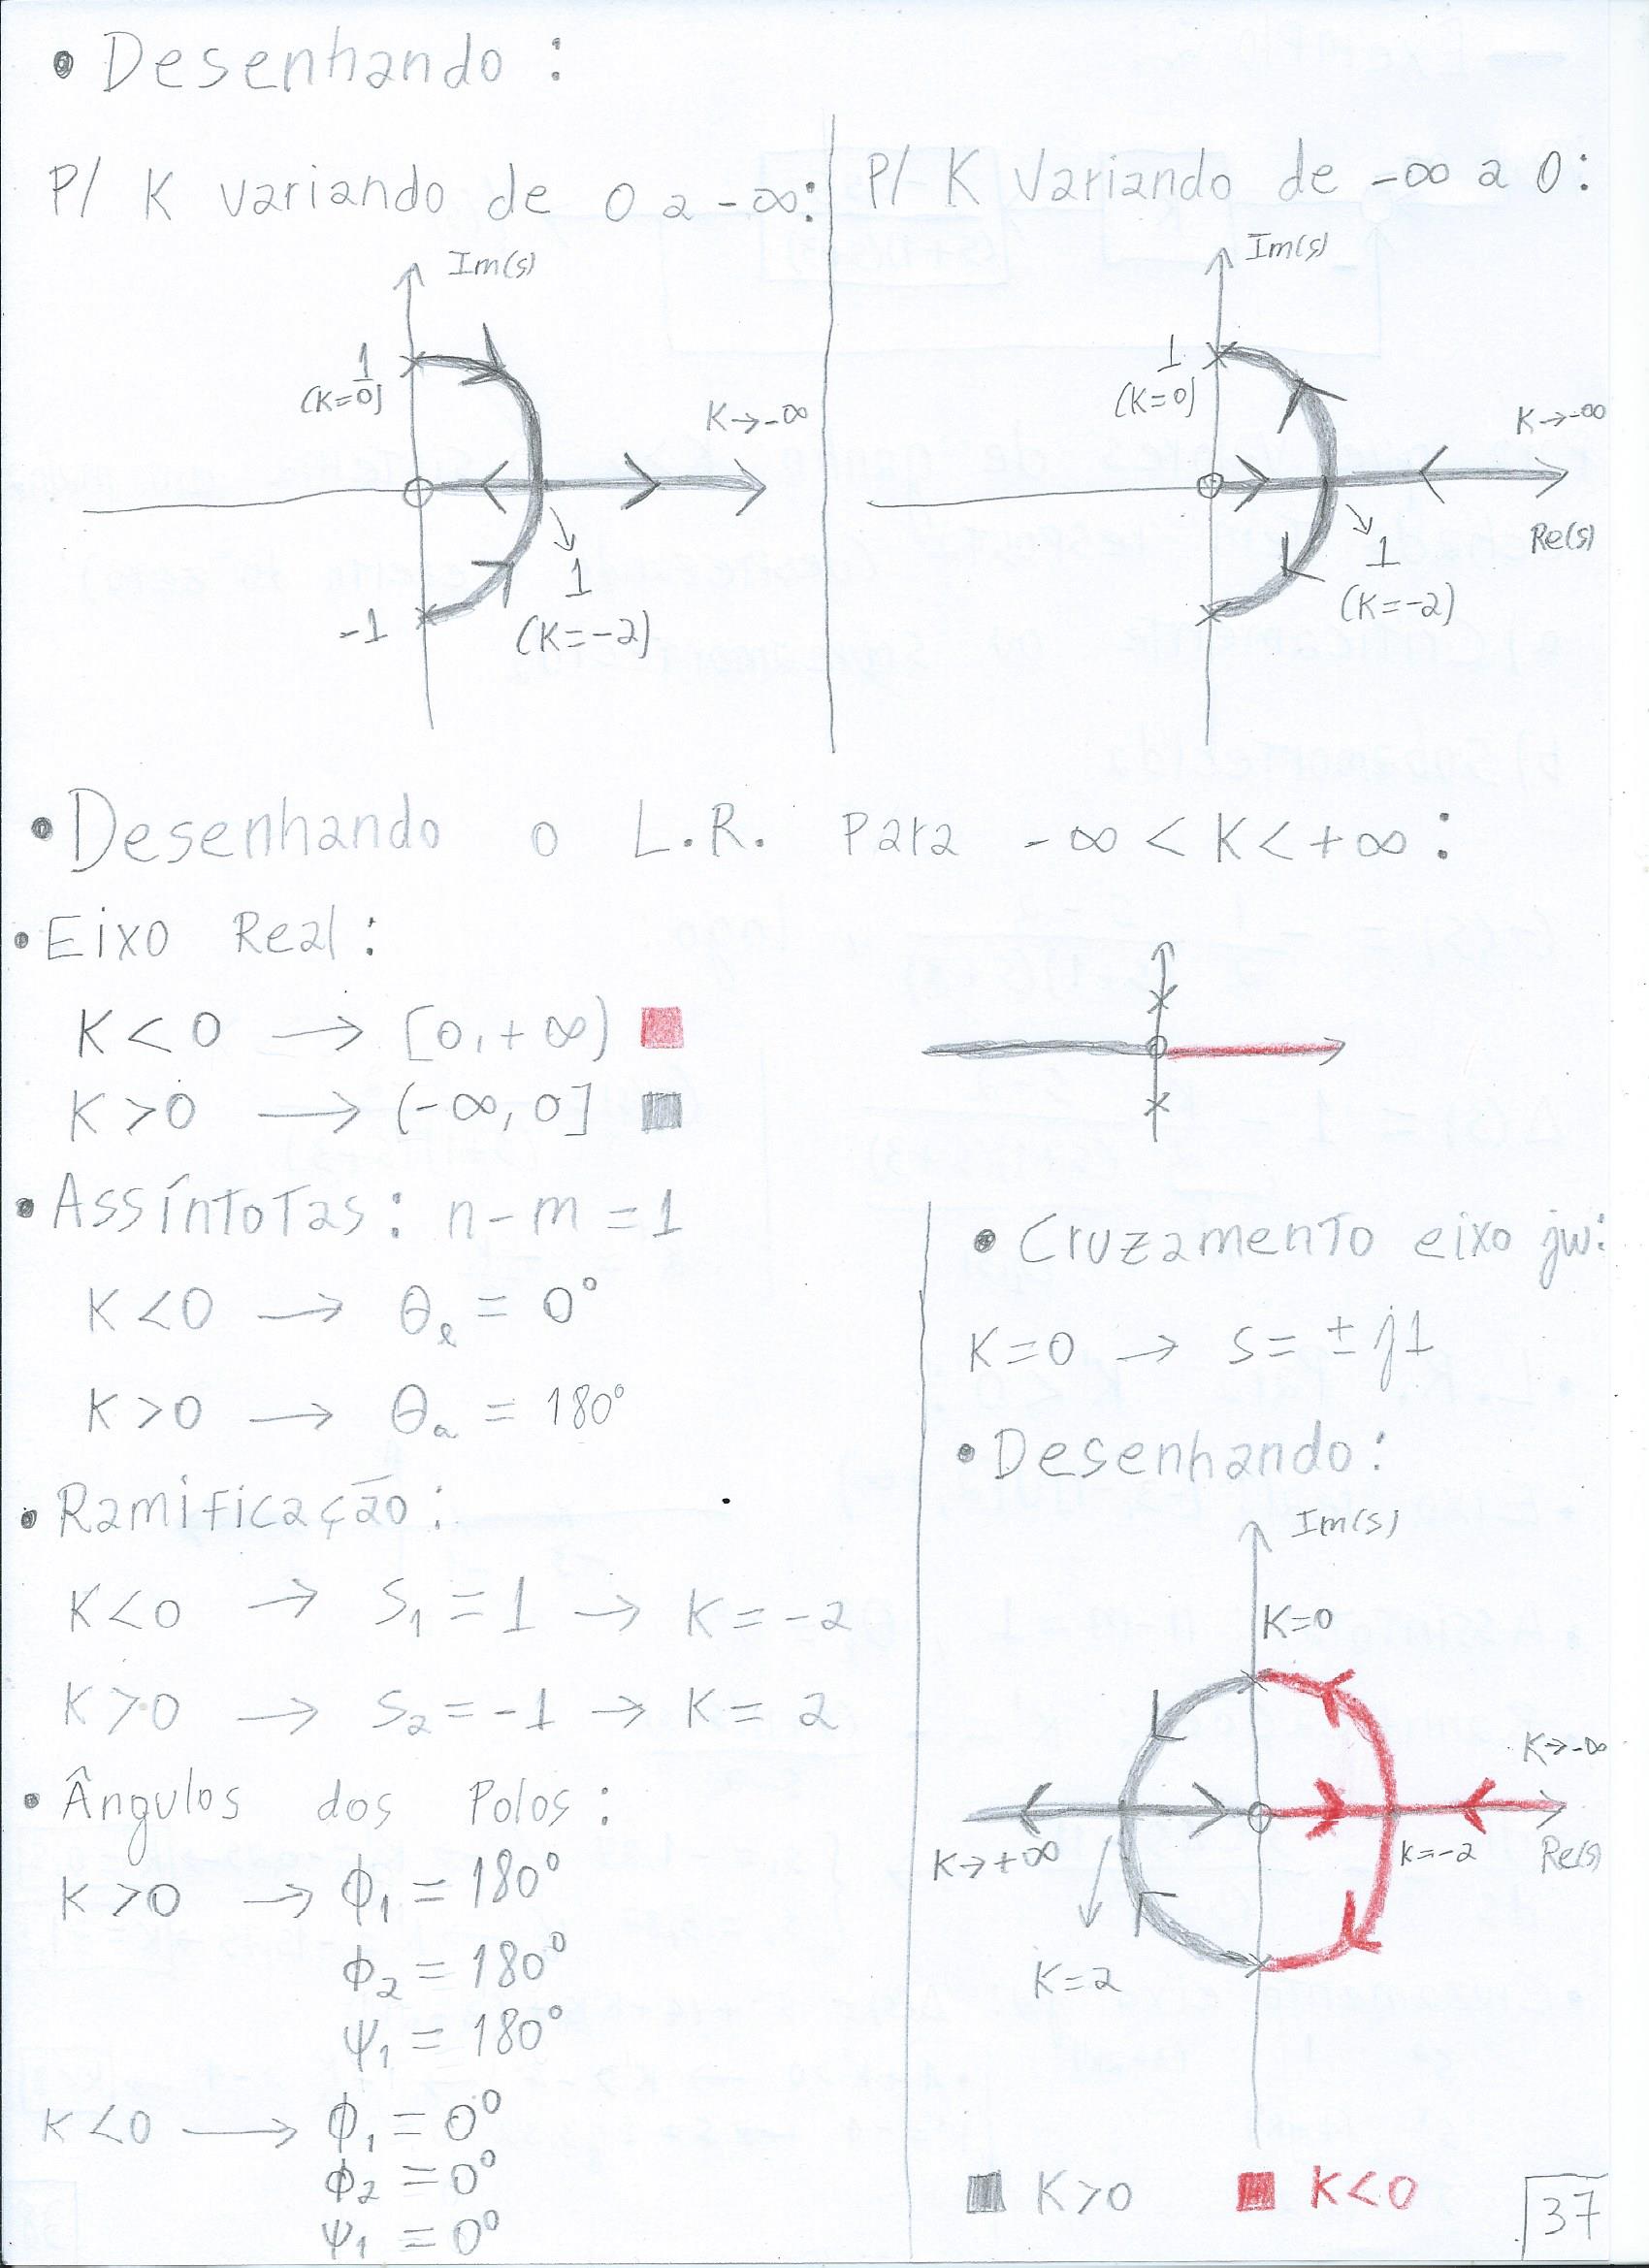 • Desenhando :
P/ K variando de 0 a -∞:
Im(s)
1
(K=0)
K→-∞
1
(K=-2)
-1
P/ K variando de -∞ a 0:
Im(s)
1
(K=0)
K→-∞
Re(s)
1
(K=-2)
• Desenhando o L.R. Para -∞ < K < +∞ :
• Eixo Real :
K < 0 → [0, +∞)
K > 0 → (-∞, 0]
• Assíntotas : n - m = 1
K < 0 → θℓ = 0°
K > 0 → θa = 180°
• Ramificação :
K < 0 → S₁ = 1 → K = -2
K > 0 → S₂ = -1 → K = 2
• Ângulos dos Polos :
K > 0 → ϕ₁ = 180°
ϕ₂ = 180°
ψ₁ = 180°
K < 0 → ϕ₁ = 0°
ϕ₂ = 0°
ψ₁ = 0°
• Cruzamento eixo jw:
K = 0 → S = ± j1
• Desenhando :
Im(s)
K=0
K→-∞
K→+∞
K=-2
Re(s)
K=2
K>0
K<0
37